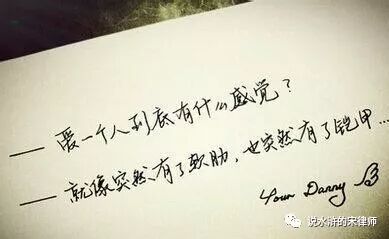 —— 爱一个人到底有什么感觉？
—— 就像突然有了软肋，也突然有了铠甲...
Your Danny
说水浒的宋律师